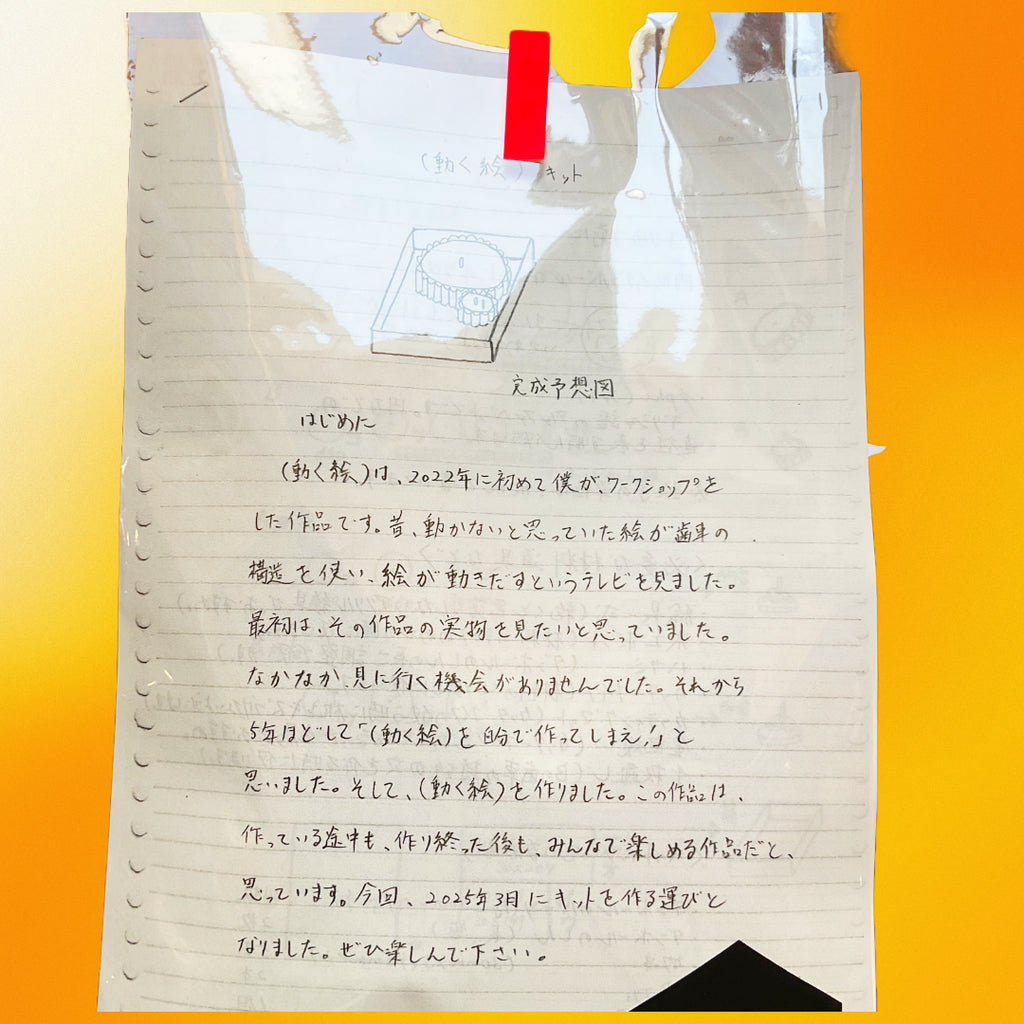 (動く絵)キット
完成予想図
はじめに
(動く絵)は、2022年に初めて僕が、ワークショップを
した作品です。昔、動かないと思っていた絵が歯車の
構造を使い、絵が動きだすというテレビを見ました。
最初は、その作品の実物を見たいと思っていました。
なかなか、見に行く機会がありませんでした。それから
5年ほどして「(動く絵)を自分で作ってしまえ!」と
思いました。そして、(動く絵)を作りました。この作品は、
作っている途中も、作り終った後も、みんなで楽しめる作品だと、
思っています。今回、2025年3月にキットを作る運びと
なりました。ぜひ楽しんで下さい。